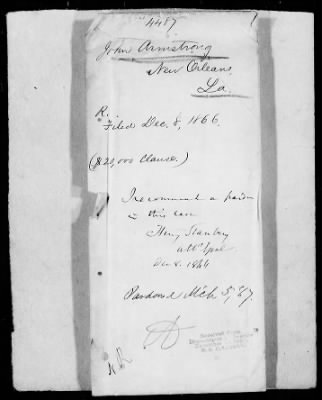 4487
John Armstrong
New Orleans
La.
R.
Filed Dec. 8, 1866.
($20,000 Clause.)
I recommend a pardon
in this case
Henry Stanbery
Att'y Genl
Dec 8. 1866
Pardoned Mch 5, '67.